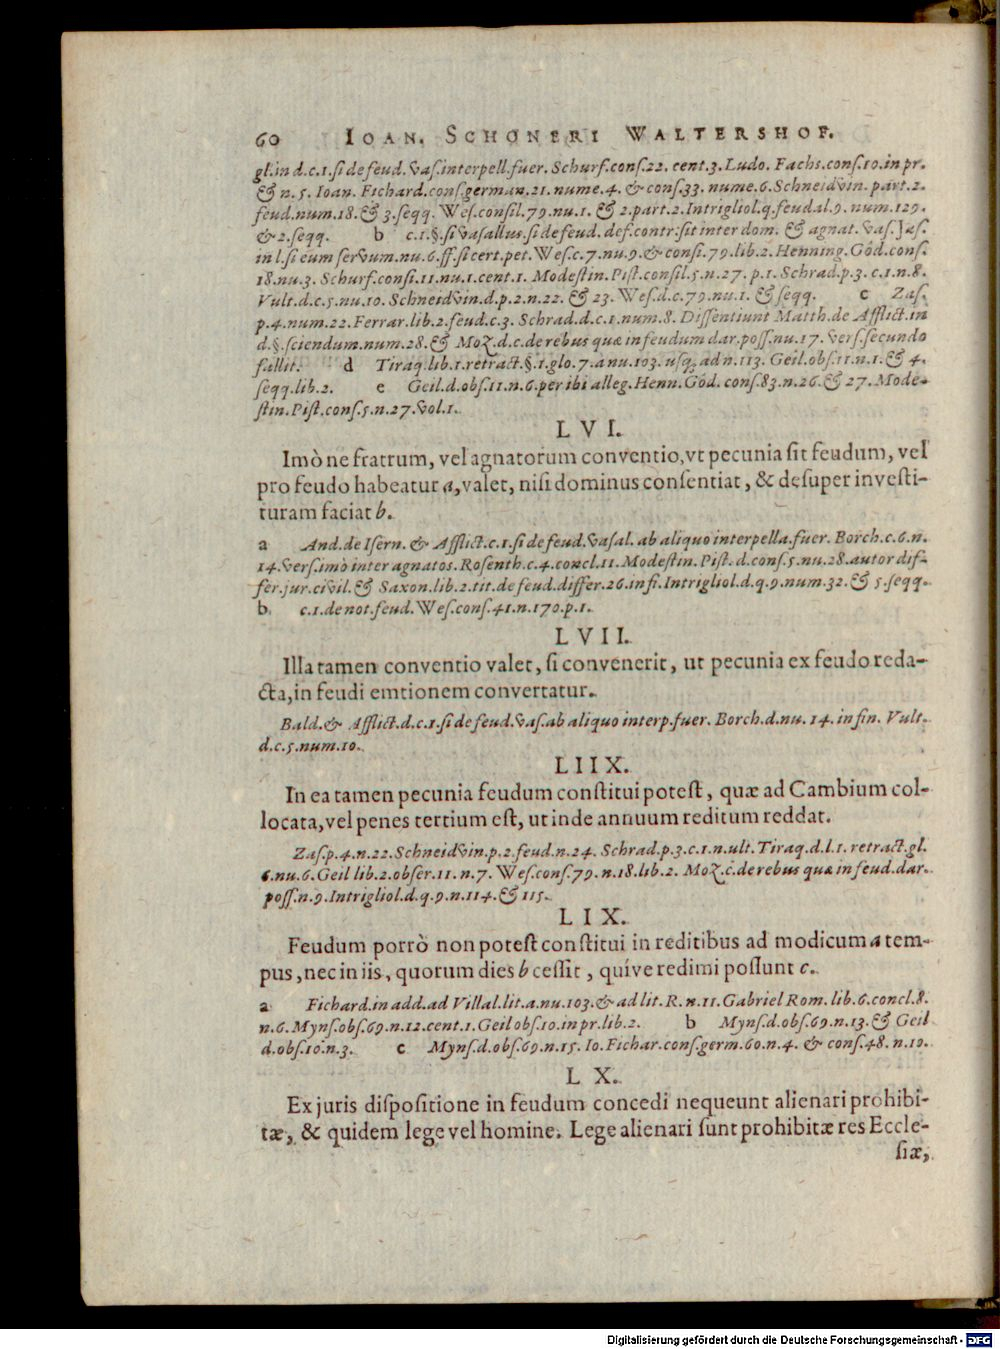 60 IOAN. SCHONERI WALTERSHOF.
gl. in d. c. 1. si de feud. vas. interpell. fuer. Schurf. cons. 22. cent. 3. Ludo. Fachs. cons. 10. in pr.
& n. 5. Ioan. Fichard. cons. german. 21. nume. 4. & cons. 33. nume. 6. Schneidvin. part. 2.
feud. num. 18. & 3. seqq. Wes. consil. 79. nu. 1. & 2. part. 2. Intrigliol. q. feudal. 9. num. 129.
& 2. seqq. b c. 1. §. si vasallus. si de feud. def. contr. sit inter dom. & agnat. vas. Jas.
in l. si eum servum. nu. 6. ff. si cert. pet. Wes. c. 7. nu. 9. & consi. 79. lib. 2. Henning. Göd. cons.
18. nu. 3. Schurf. consi. 11. nu. 1. cent. 1. Modestin. Pist. consil. 5. n. 27. p. 1. Schrad. p. 3. c. 1. n. 8.
Vult. d. c. 5. nu. 10. Schneidvin. d. p. 2. n. 22. & 23. Wes. d. c. 79. nu. 1. & seqq. c Zas.
p. 4. num. 22. Ferrar. lib. 2. feud. c. 3. Schrad. d. c. 1. num. 8. Dissentiunt Matth. de Afflict. in
d. §. sciendum. num. 28. & Moz. d. c. de rebus quæ in feudum dar. poss. nu. 17. vers. secundo
fallit. d Tiraq. lib. 1. retract. §. 1. glo. 7. a nu. 103. usq; ad n. 113. Geil. obs. 11. n. 1. & 4.
seqq. lib. 2. e Geil. d. obs. 11. n. 6. per ibi alleg. Henn. Göd. cons. 83. n. 26. & 27. Mode-
stin. Pist. cons. 5. n. 27. vol. 1.
LVI.
Imò ne fratrum, vel agnatorum conventio, vt pecunia sit feudum, vel
pro feudo habeatur a, valet, nisi dominus consentiat, & desuper investi-
turam faciat b.
a And. de Isern. & Afflict. c. 1. si de feud. vasal. ab aliquo interpella. fuer. Borch. c. 6. n.
14. vers. imò inter agnatos. Rosenth. c. 4. concl. 11. Modestin. Pist. d. cons. 5. nu. 28. autor dif-
fer. jur. civil. & Saxon. lib. 2. tit. de feud. differ. 26. infi. Intrigliol. d. q. 9. num. 32. & 5. seqq.
b c. 1. de not. feud. Wes. cons. 41. n. 170. p. 1.
LVII.
Illa tamen conventio valet, si convenerit, ut pecunia ex feudo reda-
cta, in feudi emtionem convertatur.
Bald. & Afflict. d. c. 1. si de feud. vas. ab aliquo interp. fuer. Borch. d. nu. 14. in fin. Vult.
d. c. 5. num. 10.
LIIX.
In ea tamen pecunia feudum constitui potest, quæ ad Cambium col-
locata, vel penes tertium est, ut inde annuum reditum reddat.
Zas. p. 4. n. 22. Schneidvin. p. 2. feud. n. 24. Schrad. p. 3. c. 1. n. ult. Tiraq. d. l. 1. retract. gl.
6. nu. 6. Geil lib. 2. obser. 11. n. 7. Wes. cons. 79. n. 18. lib. 2. Moz. c. de rebus quæ in feud. dar.
poss. n. 9. Intrigliol. d. q. 9. n. 114. & 115.
LIX.
Feudum porrò non potest constitui in reditibus ad modicum a tem-
pus, nec in iis, quorum dies b cessit, quíve redimi possunt c.
a Fichard. in add. ad Villal. lit. a. nu. 103. & ad lit. R. n. 11. Gabriel Rom. lib. 6. concl. 8.
n. 6. Myns. obs. 69. n. 12. cent. 1. Geil obs. 10. in pr. lib. 2. b Myns. d. obs. 69. n. 13. & Geil
d. obs. 10. n. 3. c Myns. d. obs. 69. n. 15. Io. Fichar. cons. germ. 60. n. 4. & cons. 48. n. 10.
LX.
Ex juris dispositione in feudum concedi nequeunt alienari prohibi-
tæ, & quidem lege vel homine. Lege alienari sunt prohibitæ res Eccle-
siæ,
Digitalisierung gefördert durch die Deutsche Forschungsgemeinschaft - DFG